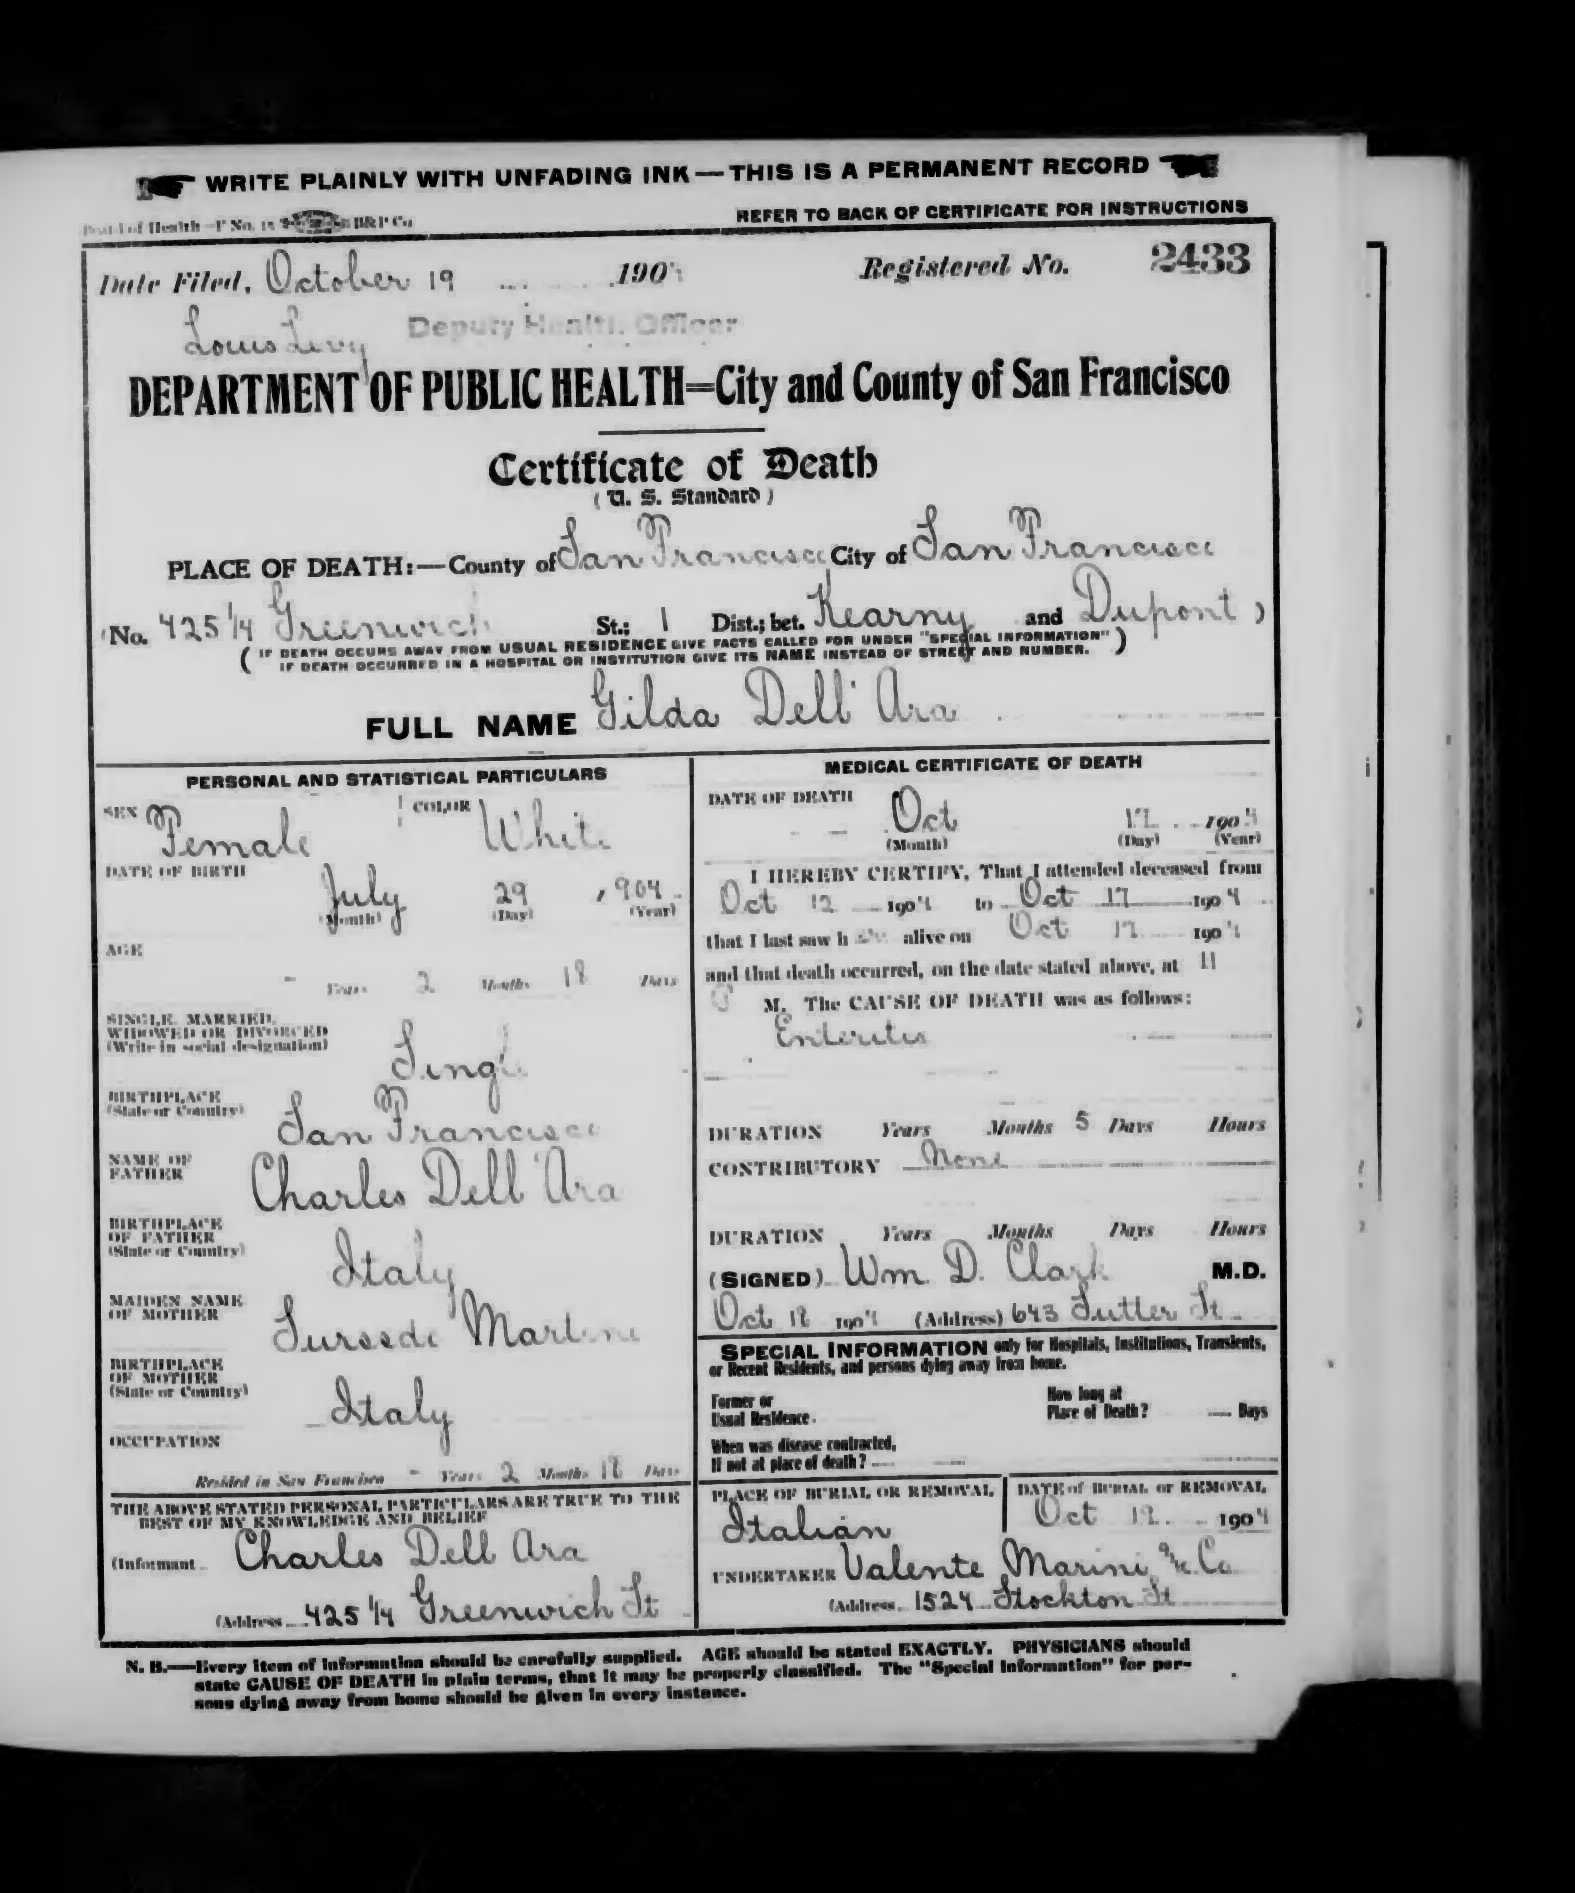 WRITE PLAINLY WITH UNFADING INK — THIS IS A PERMANENT RECORD
Board of Health—F No. B&P Co.
REFER TO BACK OF CERTIFICATE FOR INSTRUCTIONS
Date Filed, October 19 1904 Registered No. 2433
Louis Levy Deputy Health Officer
DEPARTMENT OF PUBLIC HEALTH=City and County of San Francisco
Certificate of Death
(U. S. Standard)
PLACE OF DEATH:—County of San Francisco City of San Francisco
(No. 425 1/4 Greenwich St.; 1 Dist.; bet. Kearny and Dupont )
( IF DEATH OCCURS AWAY FROM USUAL RESIDENCE GIVE FACTS CALLED FOR UNDER "SPECIAL INFORMATION" )
IF DEATH OCCURRED IN A HOSPITAL OR INSTITUTION GIVE ITS NAME INSTEAD OF STREET AND NUMBER.
FULL NAME Gilda Dell' Ara
PERSONAL AND STATISTICAL PARTICULARS
SEX Female COLOR White
DATE OF BIRTH
July 29 , 904
(Month) (Day) (Year)
AGE
- Years 2 Months 18 Days
SINGLE, MARRIED,
WIDOWED OR DIVORCED
(Write in social designation)
Single
BIRTHPLACE
(State or Country)
San Francisco
NAME OF
FATHER
Charles Dell' Ara
BIRTHPLACE
OF FATHER
(State or Country)
Italy
MAIDEN NAME
OF MOTHER
Martini
BIRTHPLACE
OF MOTHER
(State or Country)
Italy
OCCUPATION
Resided in San Francisco - Years 2 Months 18 Days
THE ABOVE STATED PERSONAL PARTICULARS ARE TRUE TO THE
BEST OF MY KNOWLEDGE AND BELIEF
(Informant Charles Dell Ara
(Address 425 1/4 Greenwich St
MEDICAL CERTIFICATE OF DEATH
DATE OF DEATH
Oct 17 1904
(Month) (Day) (Year)
I HEREBY CERTIFY, That I attended deceased from
Oct 12 1904 to Oct 17 1904
that I last saw h alive on Oct 17 1904
and that death occurred, on the date stated above, at 11
P M. The CAUSE OF DEATH was as follows:
Enteritis
DURATION Years Months 5 Days Hours
CONTRIBUTORY None
DURATION Years Months Days Hours
(SIGNED) Wm. D. Clark M.D.
Oct 18 1904 (Address) 643 Sutter St
SPECIAL INFORMATION only for Hospitals, Institutions, Transients,
or Recent Residents, and persons dying away from home.
Former or
Usual Residence
How long at
Place of Death? Days
When was disease contracted,
If not at place of death?
PLACE OF BURIAL OR REMOVAL
Italian
DATE of BURIAL or REMOVAL
Oct 19 1904
UNDERTAKER Valente Marini & Co
(Address 1524 Stockton St
N. B.—Every item of information should be carefully supplied. AGE should be stated EXACTLY. PHYSICIANS should
state CAUSE OF DEATH in plain terms, that it may be properly classified. The "Special Information" for per-
sons dying away from home should be given in every instance.